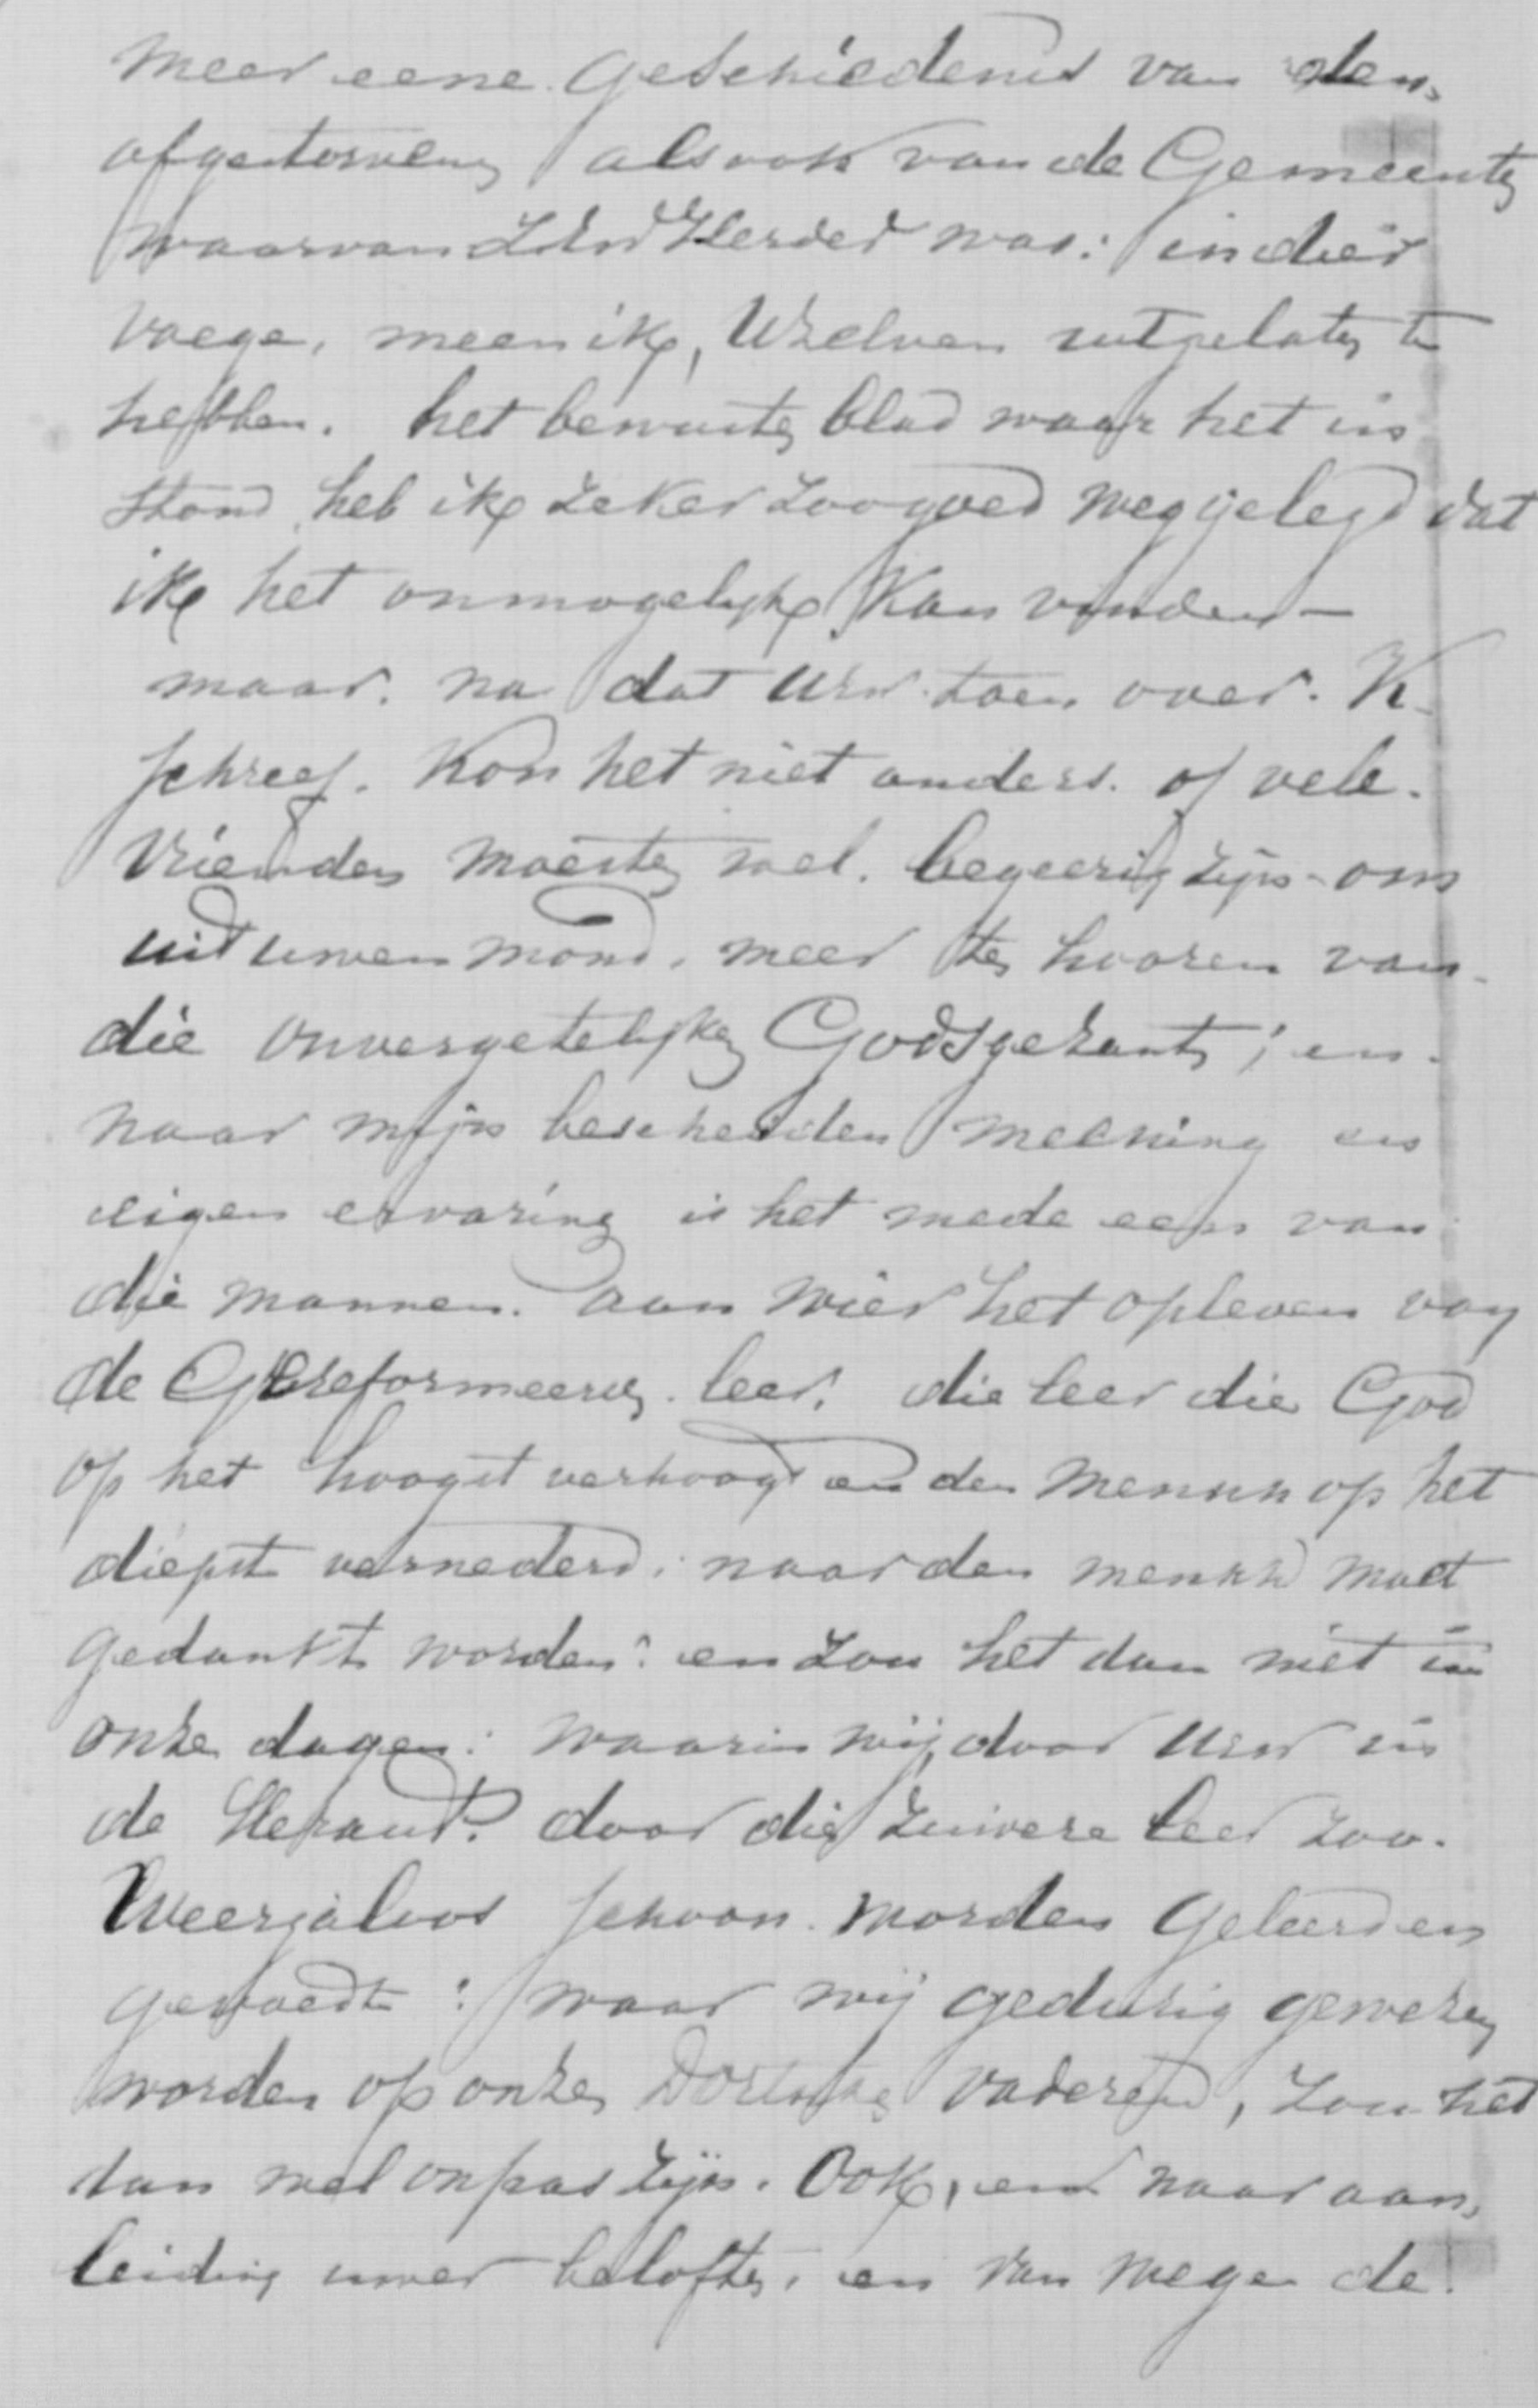 meer eene Geschiedenis van den
afgestorvene alsook van de Gemeente
waarvan ZEw Herder was: in dier
voege, meen ik, Uzelven uitgelaten te
hebben. het bewuste blad waar het in
stond heb ik zeker zoogoed weggelegd dat
ik het onmogelijk kan vinden —
maar. na dat UEw. toen over. K.
schreef. kon het niet anders. of vele.
vrienden moesten wel. begeerig zijn - om
uit uwen mond, meer te hooren van
die onvergetelijke Godsgezant; en.
naar mijn bescheiden meening en
eigen ervaring is het mede een van
die mannen. aan wier het opleven van
de Gereformeerde leer. die leer die God
op het hoogst verhoogt en den mensch op het
diepst vernederd. naar den mensch moet
gedankt worden: en zou het dan niet in
onze dagen: waarin wij, door UEw in
de Heraut. door die zuivere leer zoo.
Weergaloos schoon. worden geleerd en
gevoedt: waar wij gedurig gewezen
worden op onze Dortsche vaderen, zou het
dan wel onpas zijn. Ook, en naar aan,
leiding uwer belofte, en van wege de